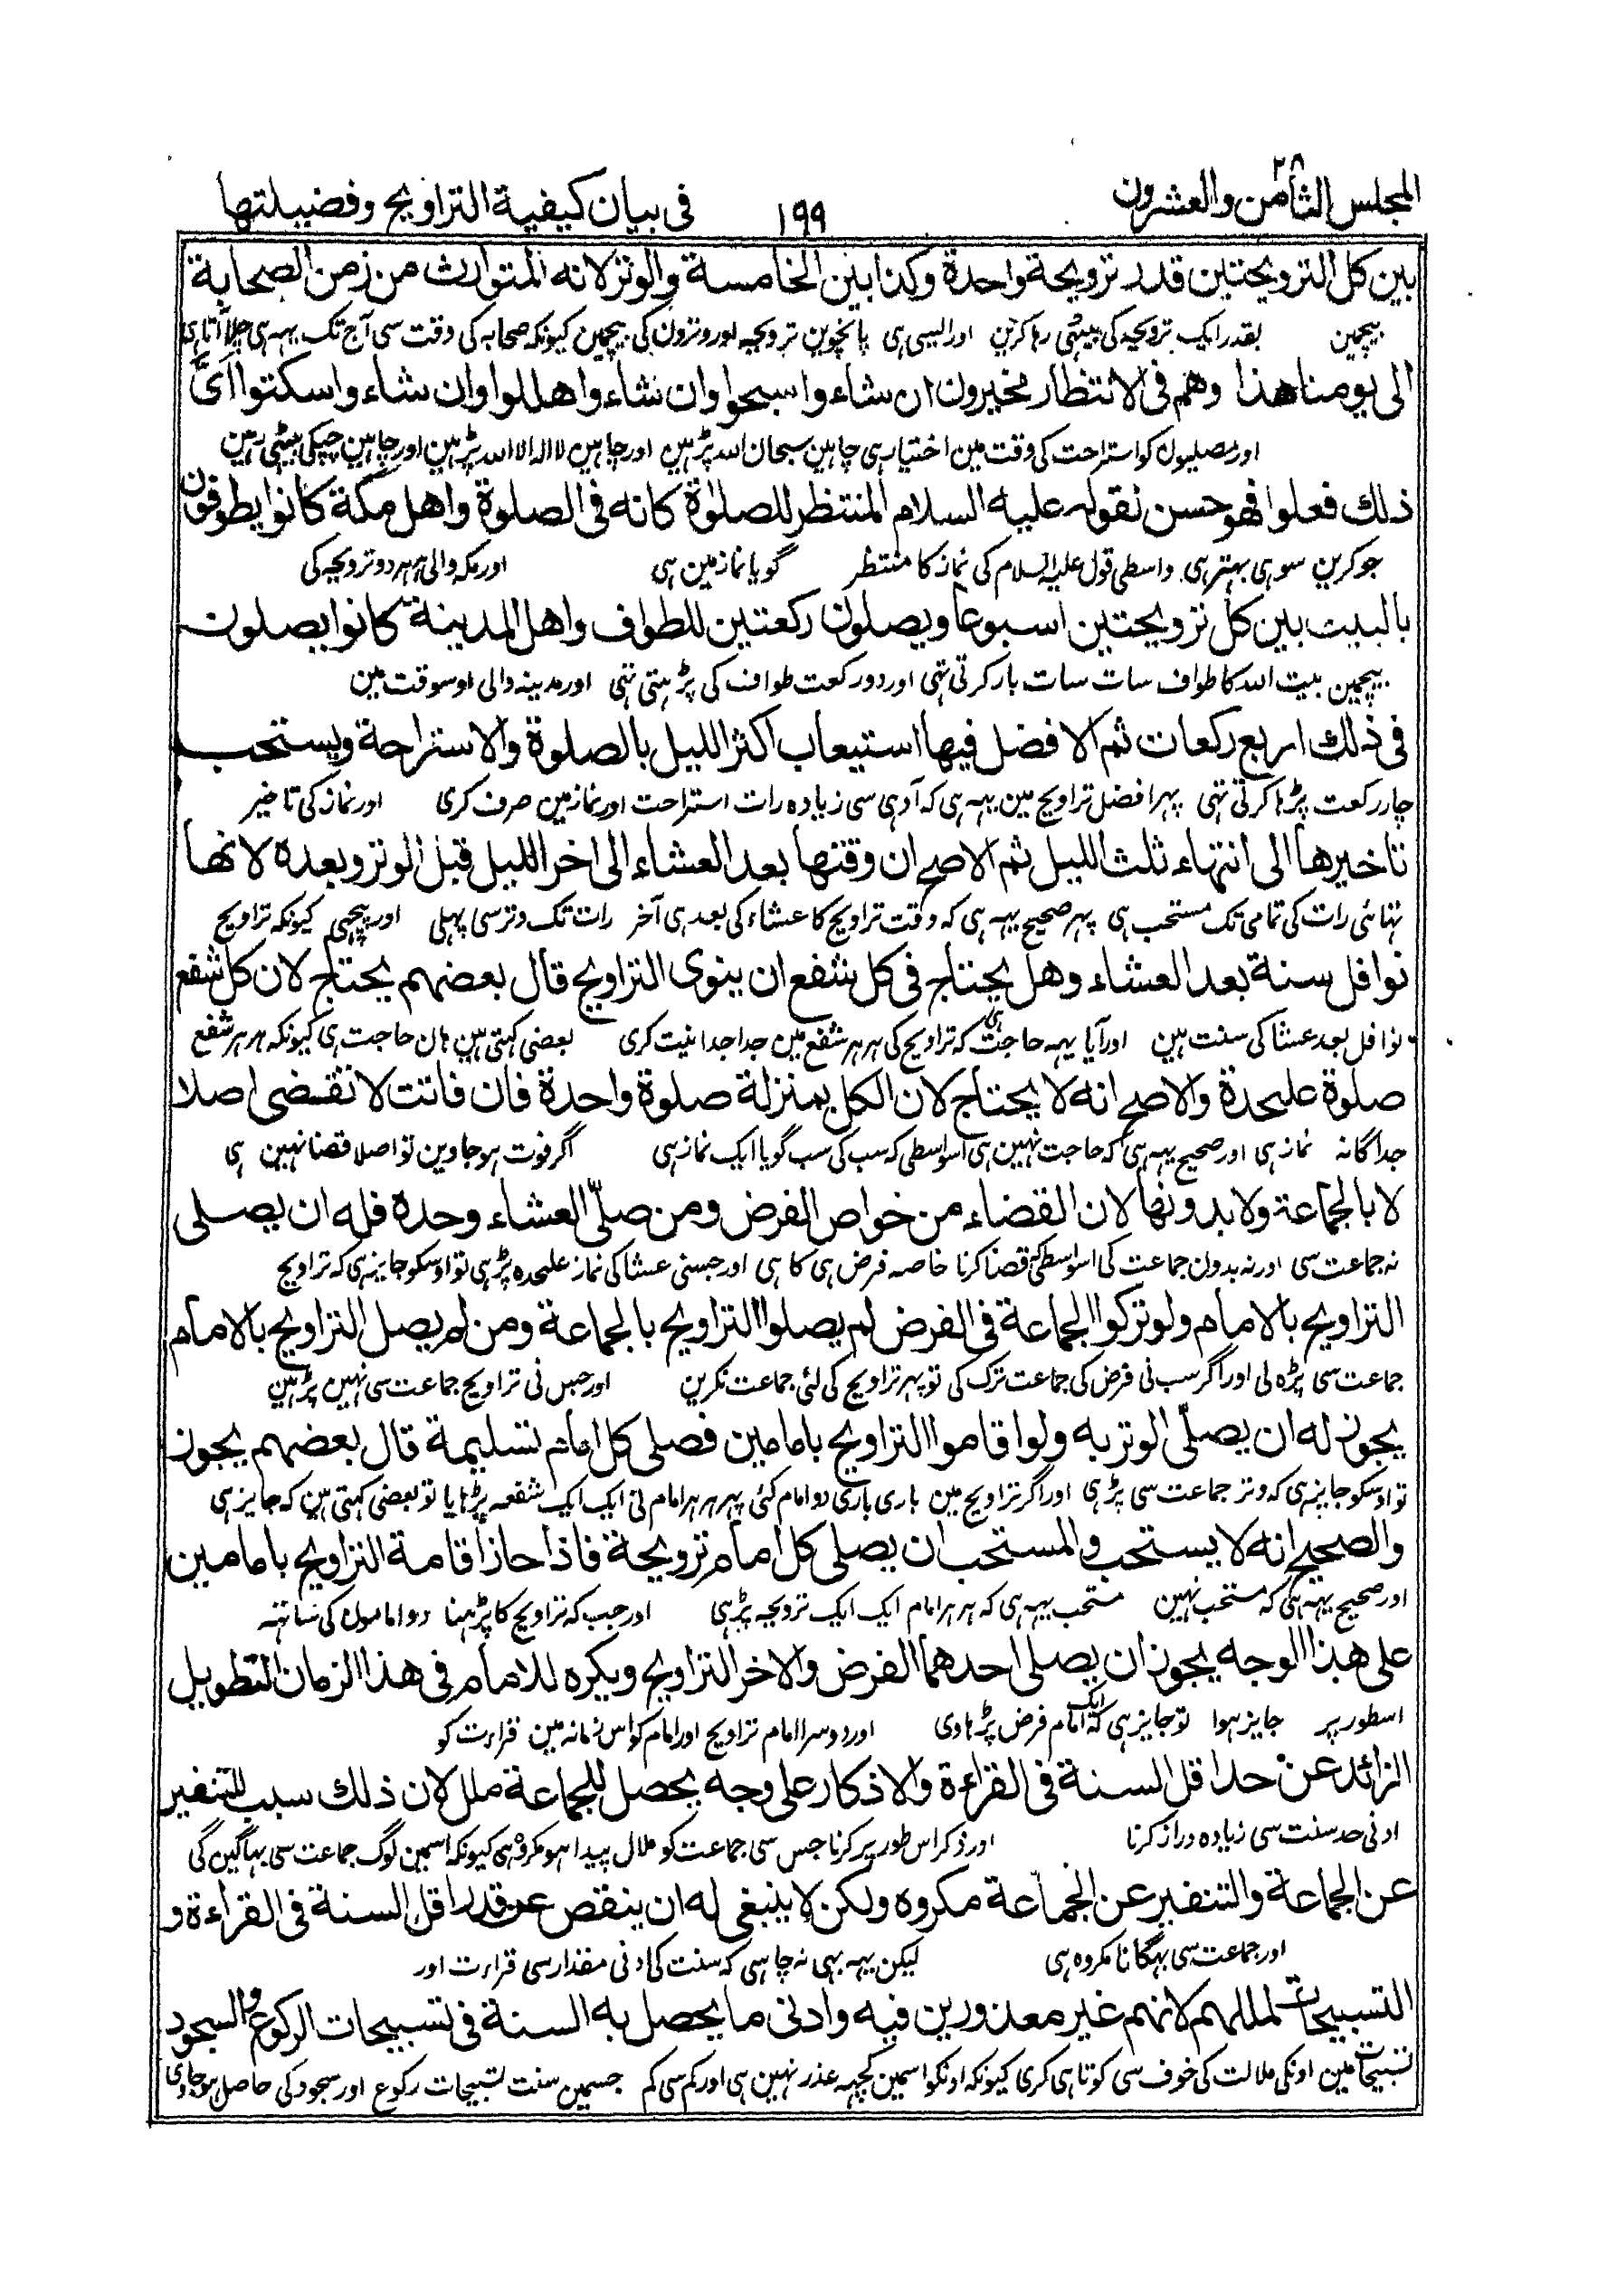 المجلس الثامن والعشرون ٢٨
١٩٩
فى بيان كيفية التراويح وفضيلتها
بين كل الترويحتين قدر ترويحة واحدة وكذا بين الخامسة والوتر لانه المتوارث من زمن الصحابة
بیچمین بقدر ایک ترویحہ کی بیٹھی رہا کرین اور ایسی ہی پانچوین ترویحہ اور وترون کی بیچمین کیونکہ صحابہ کی وقت سی آج تک یہہ ہی چلا آتا ہی
الى يومنا هذا وهم فى الانتظار مخيرون ان شاء وا سبحوا وان شاء وا هللوا وان شاء وا سكتوا اىَّ
اور مصلیون کو استراحت کی وقت مین اختیار ہی چاہین سبحان اللہ پڑہین اور چاہین لا الہ الا اللہ پڑہین اور چاہین چپکی بیٹھی رہین
ذلك فعلوا فهو حسن لقوله عليه السلام المنتظر للصلوة كانه فى الصلوة واهل مكة كانوا يطوفون
جو کرین سو ہی بہتر ہی واسطی قول علیہ السلام کی نماز کا منتظر گویا نماز مین ہی اور مکہ والی ہر ہر دو ترویحہ کی
بالبيت بين كل ترويحتين اسبوعا ويصلون ركعتين للطواف واهل المدينة كانوا يصلون
بیچمین بیت اللہ کا طواف سات سات بار کرتی تہی اور دو رکعت طواف کی پڑہتی تہی اور مدینہ والی اوسوقت مین
فى ذلك اربع ركعات ثم الافضل فيها استيعاب اكثر الليل بالصلوة والاستراحة ويستحب
چار رکعت پڑہا کرتی تہی پہر افضل تراویح مین یہہ ہی کہ آدہی سی زیادہ رات استراحت اور نماز مین صرف کری اور نماز کی تاخیر
تاخيرها الى انتهاء ثلث الليل ثم الاصح ان وقتها بعد العشاء الى اخر الليل قبل الوتر وبعده لانها
تہائی رات کی تمامی تک مستحب ہی پہر صحیح یہہ ہی کہ وقت تراویح کا عشاء کی بعد ہی آخر رات تک وتر سی پہلی اور پیچہی کیونکہ تراویح
نوافل سنة بعد العشاء وهل يحتاج فى كل شفع ان ينوى التراويح قال بعضهم يحتاج لان كل شفع
نوافل بعد عشا کی سنت ہین اور آیا یہہ حاجت ہی کہ تراویح کی ہر ہر شفع مین جدا جدا نیت کری بعضی کہتی ہین ہان حاجت ہی کیونکہ ہر ہر شفع
صلوة عليحدة والاصح انه لا يحتاج لان الكل بمنزلة صلوة واحدة فان فاتت لا تقضى اصلا
جداگانہ نماز ہی اور صحیح یہہ ہی کہ حاجت نہین ہی اسواسطی کہ سب کی سب گویا ایک نماز ہی اگر فوت ہو جاوین تو اصلا قضا نہین ہی
لا بالجماعة ولا بدونها لان القضاء من خواص الفرض ومن صلّى العشاء وحده فله ان يصلى
نہ جماعت سی اور نہ بدون جماعت کی اسواسطی کہ قضا کرنا خاصہ فرض ہی کا ہی اور جسنی عشا کی نماز علیحدہ پڑہی تو اوسکو جایز ہی کہ تراویح
التراويح بالامام ولو تركوا الجماعة فى الفرض لم يصلوا التراويح بالجماعة ومن لم يصل التراويح بالامام
جماعت سی پڑہ لی اور اگر سب نی فرض کی جماعت ترک کی تو پہر تراویح کی لئی جماعت نکرین اور جس نی تراویح جماعت سی نہین پڑہین
يجوز له ان يصلّى الوتر به ولو اقاموا التراويح بامامين فصلى كل امام تسليمة قال بعضهم يجوز
تو اوسکو جایز ہی کہ وتر جماعت سی پڑہی اور اگر تراویح مین باری باری دو امام کئی پہر ہر ہر امام نی ایک ایک شفعہ پڑہایا تو بعضی کہتی ہین کہ جایز ہی
والصحيح انه لا يستحب والمستحب ان يصلى كل امام ترويحة فاذا جاز اقامة التراويح بامامين
اور صحیح یہہ ہی کہ مستحب نہین مستحب یہہ ہی کہ ہر ہر امام ایک ایک ترویحہ پڑہی اور جب کہ تراویح کا پڑہنا دو امامون کی ساتہہ
على هذا الوجه يجوز ان يصلى احدهما الفرض والاخر التراويح ويكره للامام فى هذا الزمان التطويل
اسطور پر جایز ہوا تو جایز ہی کہ ایک امام فرض پڑہا دی اور دوسرا امام تراویح اور امام کو اس زمانہ مین قراءت کو
الزائد عن حد اقل السنة فى القراءة والاذكار على وجه يحصل للجماعة ملل لان ذلك سبب للتنفير
ادنی حد سنت سی زیادہ دراز کرنا اور ذکر اس طور پر کرنا جس سی جماعت کو ملال پیدا ہو مکروہ ہی کیونکہ اسمین لوگ جماعت سی بہاگین گی
عن الجماعة والتنفير عن الجماعة مكروه ولكن لا ينبغى له ان ينقص عن قدر اقل السنة فى القراءة و
اور جماعت سی بہگانا مکروہ ہی لیکن یہہ بہی نہ چاہی کہ سنت کی ادنی مقدار سی قراءت اور
التسبيحات لمللهم لانهم غير معذورين فيه وادنى ما يحصل به السنة فى تسبيحات الركوع والسجود
تسبیحات مین اونکی ملالت کی خوف سی کوتاہی کری کیونکہ اونکو اسمین کچہہ عذر نہین ہی اور کم سی کم جسمین سنت تسبیحات رکوع اور سجود کی حاصل ہو جاوی